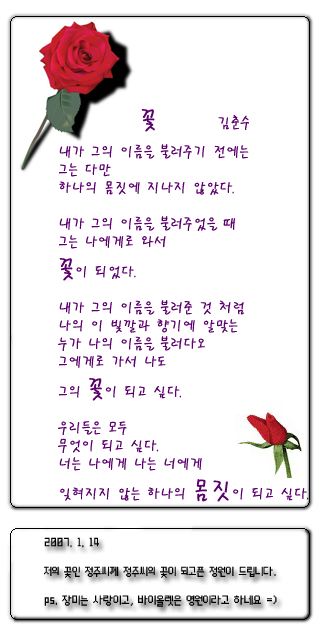 꽃 김춘수
내가 그의 이름을 불러주기 전에는
그는 다만
하나의 몸짓에 지나지 않았다.
내가 그의 이름을 불러주었을 때
그는 나에게로 와서
꽃이 되었다.
내가 그의 이름을 불러준 것 처럼
나의 이 빛깔과 향기에 알맞는
누가 나의 이름을 불러다오
그에게로 가서 나도
그의 꽃이 되고 싶다.
우리들은 모두
무엇이 되고 싶다.
너는 나에게 나는 너에게
잊혀지지 않는 하나의 몸짓이 되고 싶다.
2007. 1. 19
저의 꽃인 정주씨께 정주씨의 꽃이 되고픈 정원이 드립니다.
ps. 장미는 사랑이고, 바이올렛은 영원이라고 하네요 =)